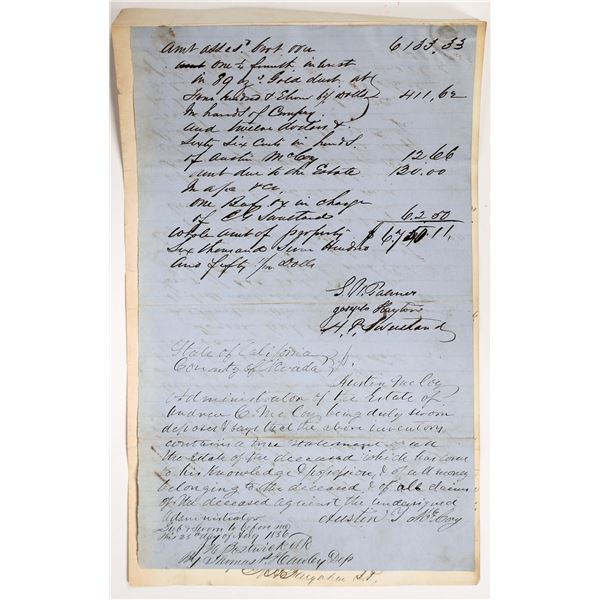 amt
6133.33
one & fourth interest
in 89 Gold dust at
four hundred & Eleven Dolls
411,62
In hands of Company
and twelve dollars &
Sixty Six Cents in hands
of Austin McCoy
12.66
amt due to the Estate
130.00
one in charge
of
62.50
Whole amt of property $
11
Six thousand Seven Hundred
and Fifty Dolls
Palmer
Joseph
State of California
County of Nevada
Austin McCoy
Administrator of the Estate of
Andrew C. McCoy being duly sworn
deposes & says that the above inventory
contains a true statement of all
the Estate of the deceased which has come
to his knowledge & possession, & of all money
belonging to the deceased & of all claims
of the deceased against the undersigned
Administrator
Austin McCoy
Sub & sworn to before me
this 23rd day of
By Thomas P. Hawley Dep